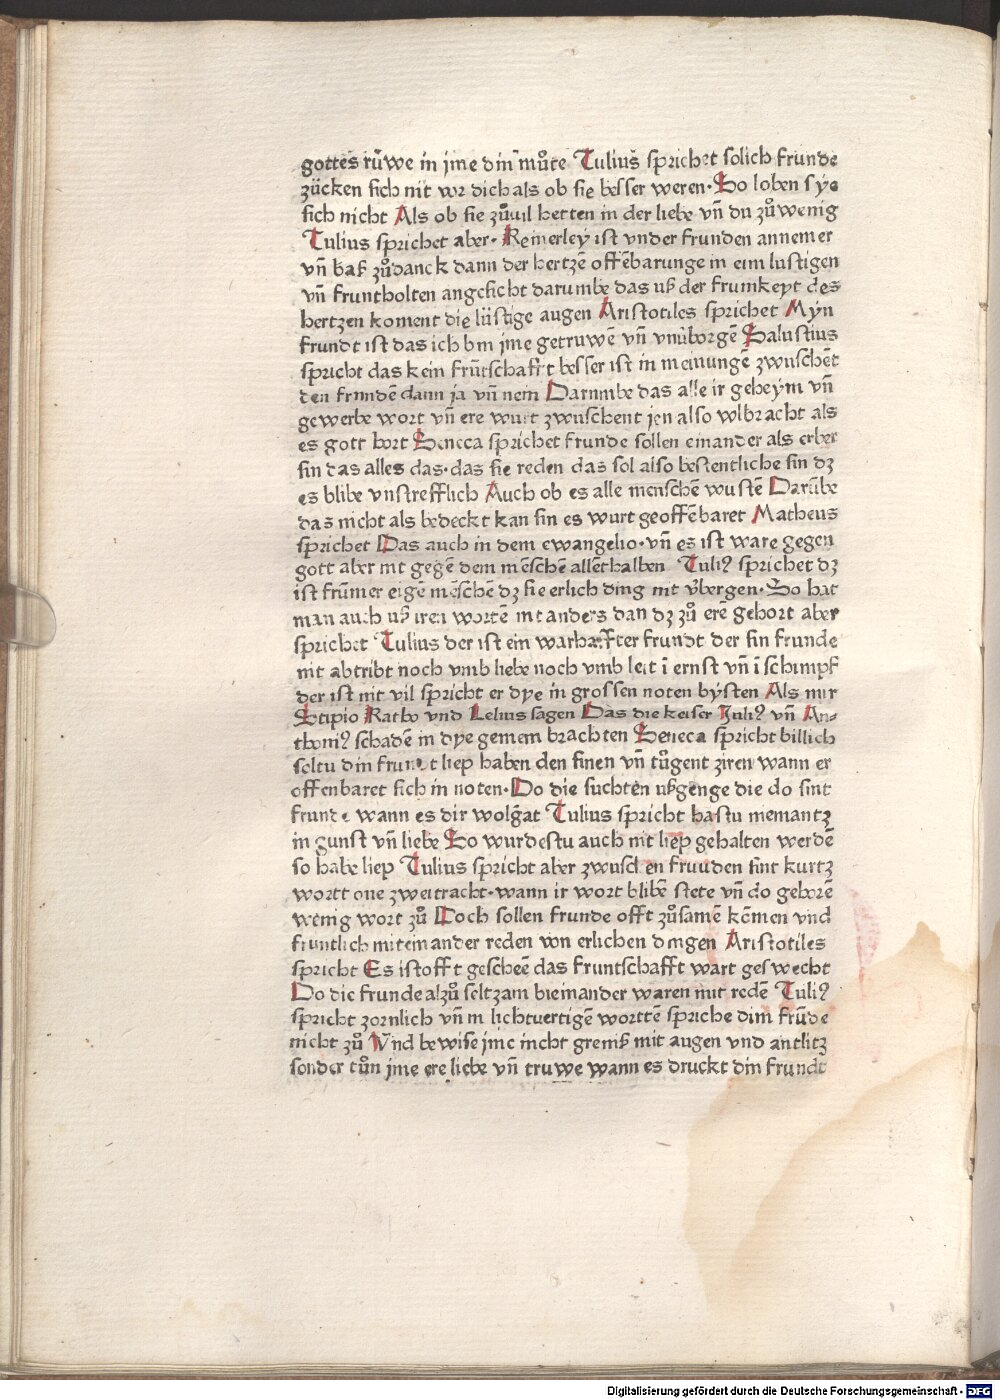 gottes růwe in jme din můte Tulius sprichet solich frunde
zücken sich nit vor dich als ob sie besser weren· So loben sye
sich nicht Als ob sie zůuil hetten in der liebe vñ du zůwenig
Tulius sprichet aber· Keinerley ist vnder frunden annemer
vñ baß zůdanck dann der hertzē offēbarunge in eim lustigen
vñ fruntholten angesicht darumbe das uß der frumkeyt des
hertzen koment die lüstige augen Aristotiles sprichet Myn
frundt ist das ich bin jme getruwē vñ vnůborgē Salustius
spricht das kein frūtschafft besser ist in meinungē zwuschēt
den frundē dann ja vñ nein Darumbe das alle ir geheym vñ
gewerbe wort vñ ere wurt zwuschent jen also wlbracht als
es gott hort Seneca sprichet frunde sollen einander als erber
sin das alles das· das sie reden das sol also bestentliche sin dz
es blibe vnstrefflich Auch ob es alle menschē wustē Darūbe
das nicht als bedeckt kan sin es wurt geoffēbaret Matheus
sprichet Das auch in dem ewangelio· vñ es ist ware gegen
gott aber nit gegē dem mēschē allēthalben Tuliꝰ sprichet dz
ist frūmer eigē mēschē dz sie erlich ding nit v̄bergen· So hat
man auch uß iren wortē nit anders dan dz zů erē gehort aber
sprichet Tulius der ist ein warhaffter frundt der sin frunde
nit abtribt noch vmb liebe noch vmb leit ī ernst vñ ī schimpf
der ist nit vil spricht er dye in grossen noten bysten Als mir
Scipio Katho vnd Lelius sagen Das die keiser Juliꝰ vñ An-
thoniꝰ schadē in dye gemein brachten Seneca spricht billich
soltu din frundt liep haben den sinen vñ tůgent ziren wann er
offenbaret sich in noten· Do die suchten ußgenge die do sint
frunde wann es dir wolgat Tulius spricht hastu niemantz
in gunst vñ liebe So wurdestu auch nit liep gehalten werdē
so habe liep Tulius spricht aber zwuschen fruuden sint kurtz
wortt one zweitracht· wann ir wort blibē stete vñ do gehorē
wenig wort zů Doch sollen frunde offt zůsamē kōmen vnd
fruntlich miteinander reden von erlichen dingen Aristotiles
spricht Es ist offt gescheē das fruntschafft wart geswecht
Do die frunde alzů seltzam bieinander waren mit redē Tuliꝰ
spricht zornlich vñ in lichtuertigē worttē spriche dim frūde
nicht zů Vnd bewise jme nicht gremß mit augen vnd antlitz
sonder tůn jme ere liebe vñ truwe wann es druckt din frundt
Digitalisierung gefördert durch die Deutsche Forschungsgemeinschaft - DFG